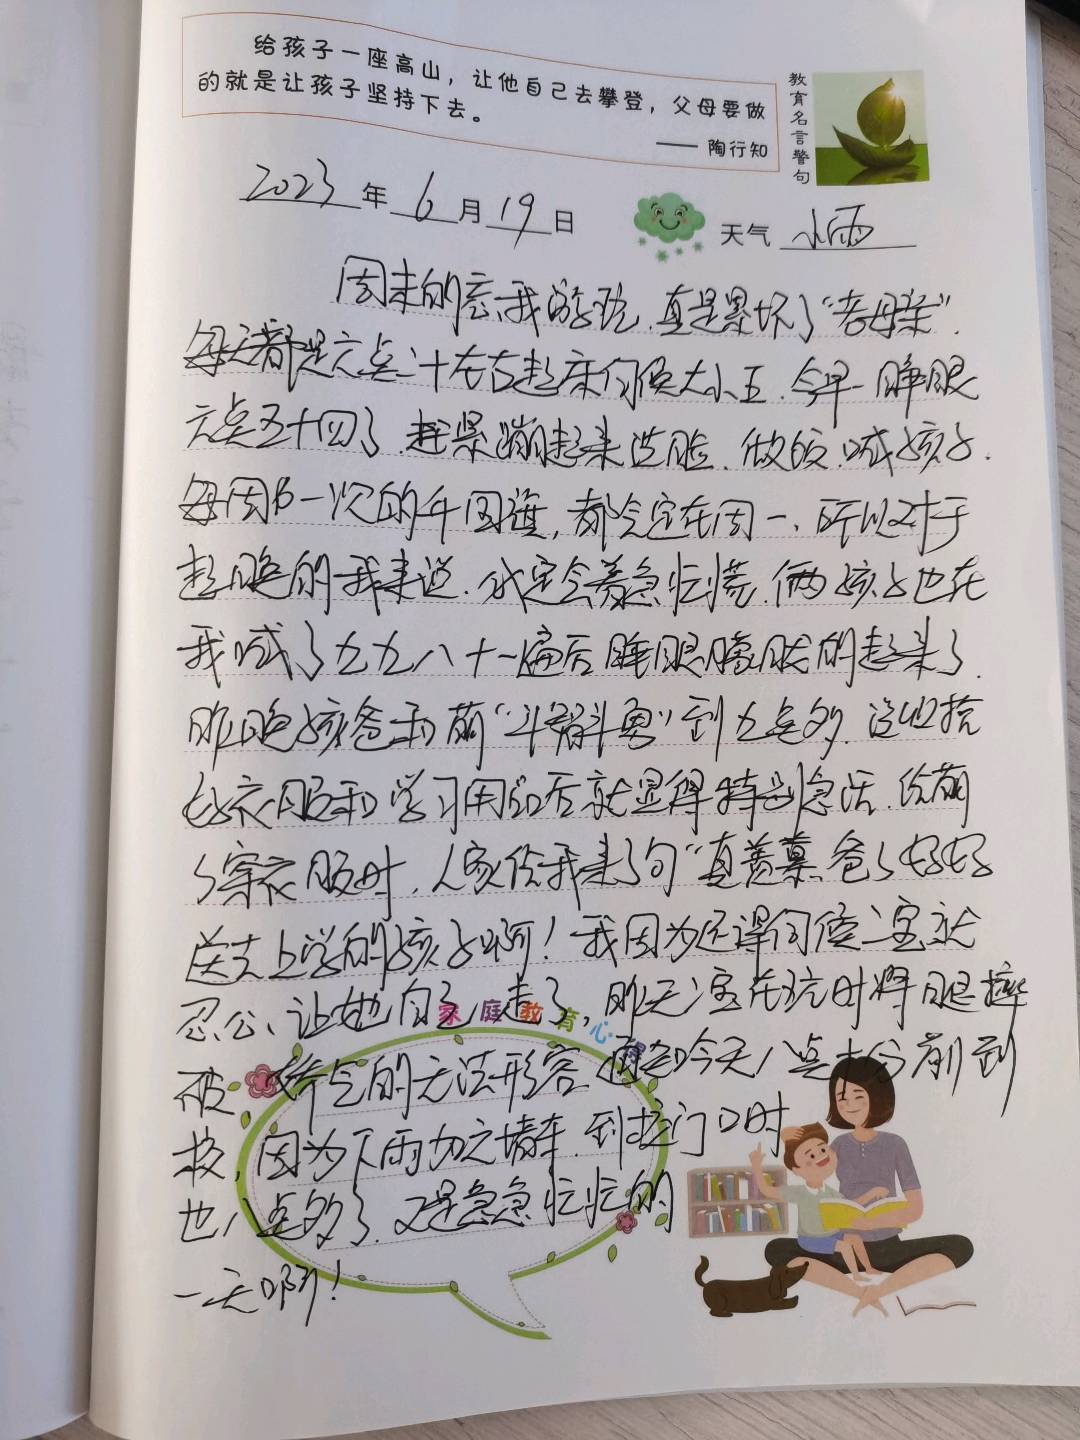 给孩子一座高山，让他自己去攀登，父母要做
的就是让孩子坚持下去。
—— 陶行知
教育名言警句
2023年6月19日
天气 小雨
周末的忘我游玩，真是累坏了“老母亲”，
每天都是六点二十左右起床伺候大小五，今早一睁眼
六点五十四了，赶紧蹦起来洗脸、做饭、喊孩子，
每周一次的升国旗，都会定在周一，所以对于
起晚的我来说，必定会着急忙慌，俩孩子也在
我喊了九九八十一遍后睡眼朦胧的起来了，
昨晚孩爸和萌“斗智斗勇”到九点多，
好衣服和学习用品后就显得特别急活，给萌
穿衣服时，人家给我来了句“真羡慕爸了好好
送去上学的孩子啊！我因为还得伺候二宝就
忍心让她自己走了，昨天二宝在玩时将腿摔
破，娇气的无法形容，通知今天八点十分前到
校，因为下雨加之堵车，到校门口时
也八点多了，又是急急忙忙的
一天啊！
家庭教育心